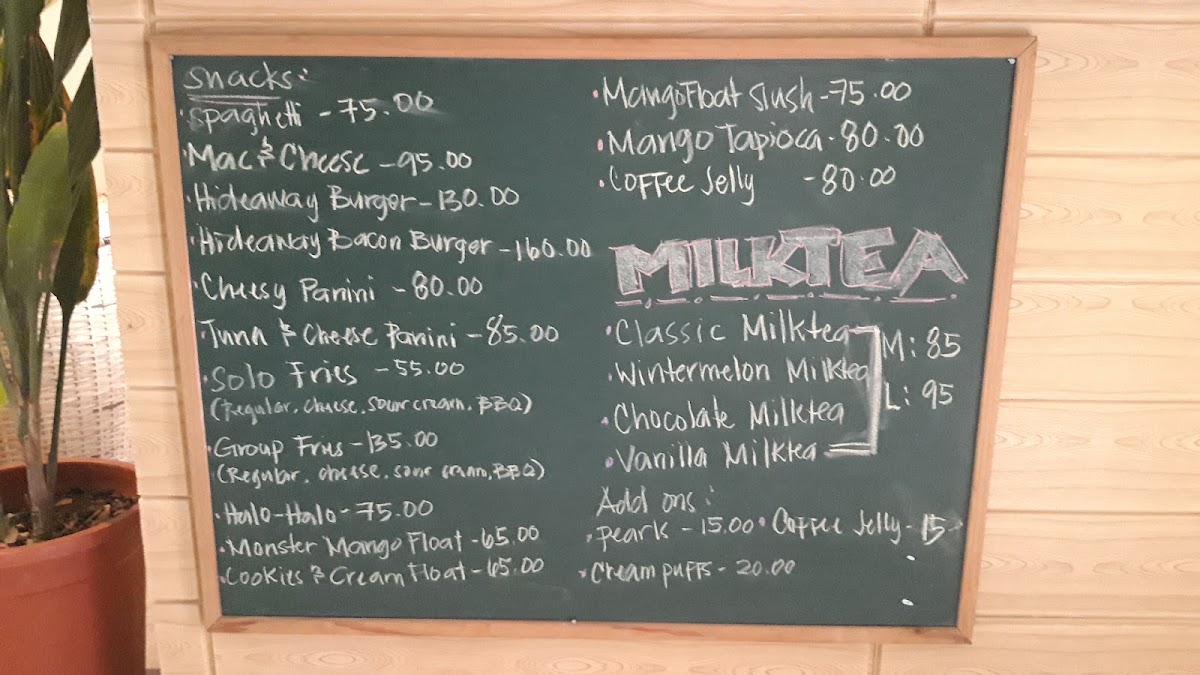 Snacks:
• Spaghetti - 75.00
• Mac & Cheese - 95.00
• Hideaway Burger - 130.00
• Hideaway Bacon Burger - 160.00
• Cheesy Panini - 80.00
• Tuna & Cheese Panini - 85.00
• Solo Fries - 55.00
(Regular, cheese, sour cream, BBQ)
• Group Fries - 135.00
(Regular, cheese, sour cream, BBQ)
• Halo-Halo - 75.00
• Monster Mango Float - 65.00
• Cookies & Cream Float - 65.00
• Mango Float Slush - 75.00
• Mango Tapioca - 80.00
• Coffee Jelly - 80.00
MILKTEA
• Classic Milktea
• Wintermelon Milktea
• Chocolate Milktea
• Vanilla Milktea
M: 85
L: 95
Add ons:
• Pearls - 15.00 • Coffee Jelly - 15
• Creampuffs - 20.00